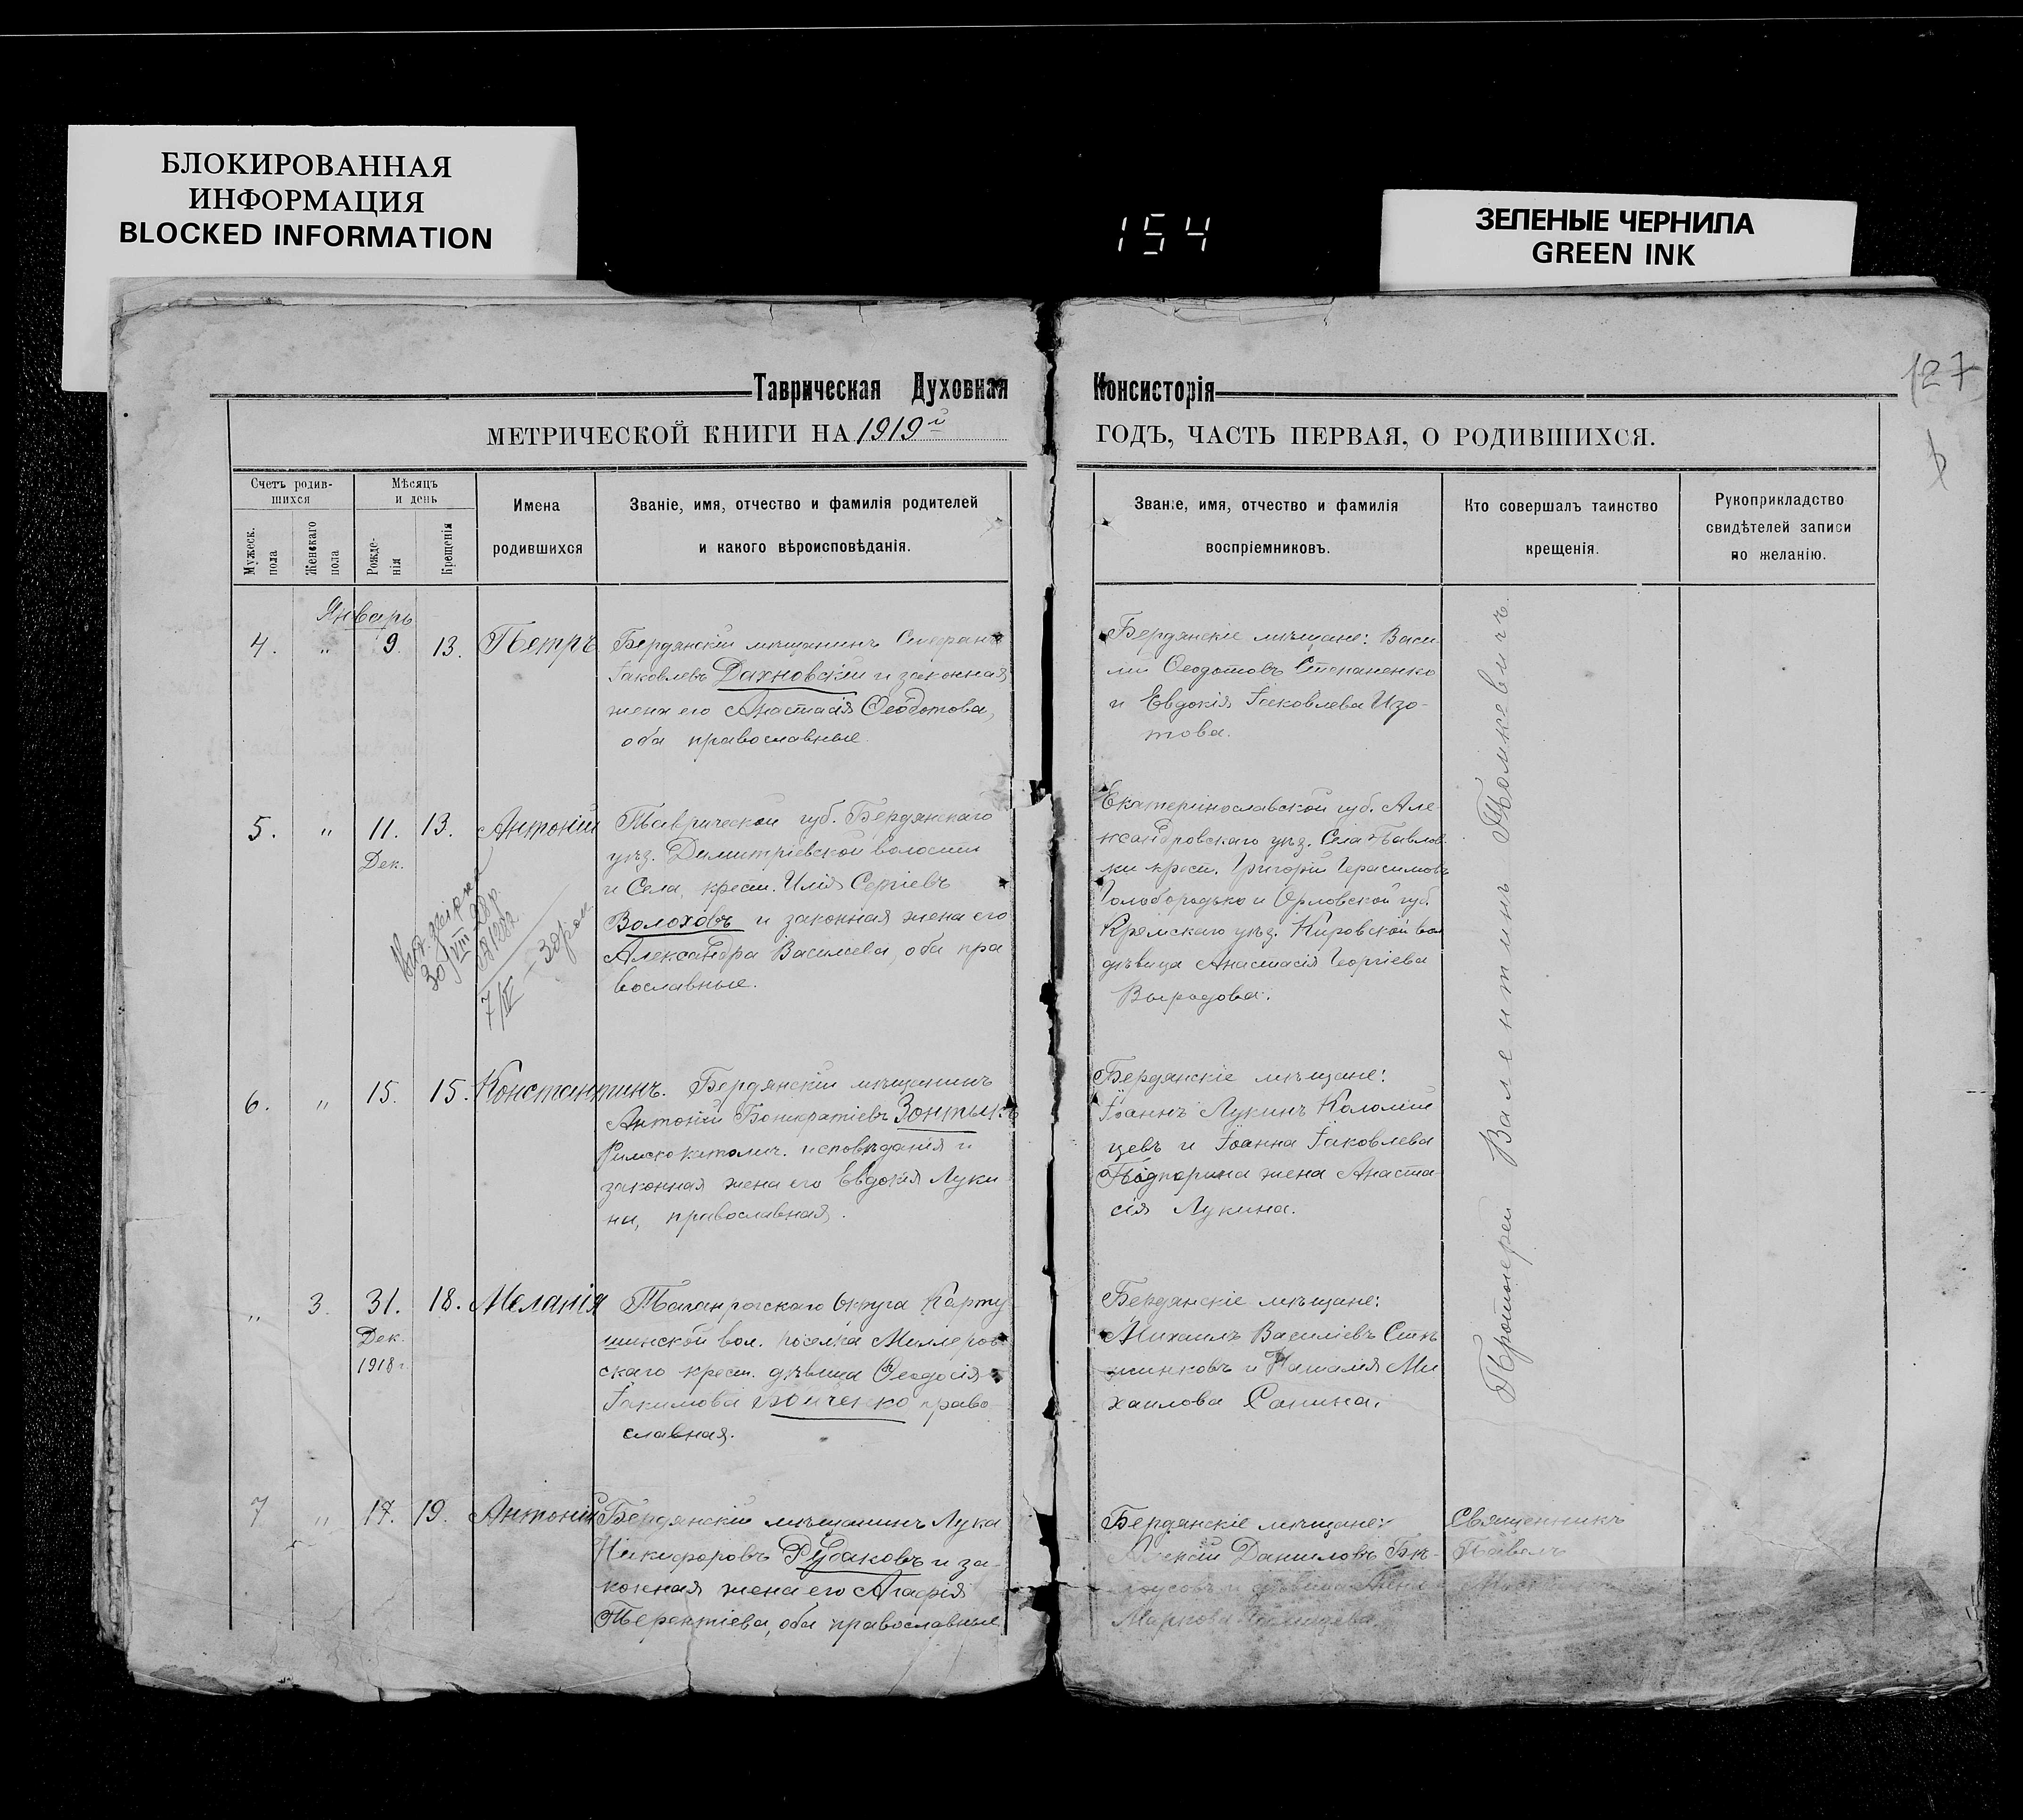 БЛОКИРОВАННАЯ
ИНФОРМАЦИЯ
BLOCKED INFORMATION
154
ЗЕЛЕНЫЕ ЧЕРНИЛА
GREEN INK
127
Таврическая Духовная Консисторія
МЕТРИЧЕСКОЙ КНИГИ НА 1919й ГОДЪ, ЧАСТЬ ПЕРВАЯ, О РОДИВШИХСЯ.
Счетъ родив-
шихся
Мужеск.
пола
Женскаго
пола
Мѣсяцъ
и день
Рожде-
нія
Крещенія
Имена
родившихся
Званіе, имя, отчество и фамилія родителей
и какого вѣроисповѣданія.
Званіе, имя, отчество и фамилія
воспріемниковъ.
Кто совершалъ таинство
крещенія.
Рукоприкладство
свидѣтелей записи
по желанію.
Январь
4. " 9. 13. Петръ
Бердянскій мѣщанинъ Стефанъ
Іаковлевъ Дахновскій и законная
жена его Анастасія Ѳеодотова,
оба православные.
Бердянскіе мѣщане: Васи
лій Ѳеодотовъ Степаненко
и Евдокія Іаковлева Изо-
това.
5. " 11. 13. Антоній
Дек.
Таврической губ. Бердянскаго
уѣз. Димитріевской волости
и Села, крест. Илія Сергіевъ
Волоховъ и законная жена его
Александра Василіева, оба пра
вославные.
30/VIII 28 р.
7/IV
Екатеринославской губ. Але
ксандровскаго уѣз. Села Павлов
ки крест. Григорій Герасимовъ
Голобородько и Орловской губ.
уѣз. Кировской вол
дѣвица Анастасія Георгіева
6. " 15. 15. Константинъ.
Бердянскій мѣщанинъ
Антоній Зонтыкъ
Римскокатолич. исповѣданія и
законная жена его Евдокія Луки
на, православная.
Бердянскіе мѣщане:
Іоаннъ Лукинъ Коломій
цевъ и Іоанна Іаковлева
Подпорина жена Анаста-
сія Лукина.
" 3. 31. 18. Меланія
Дек.
1918 г.
Таганрогскаго Округа Карту
шинской вол. поселка Миллеров
скаго крест. дѣвица Ѳеодосія
Іакимова Бойченко право-
славная.
Бердянскіе мѣщане:
Михаилъ Василіевъ
и Наталія Ми
хаилова Санина.
Протоіерей Валентинъ Томкевичъ.
7 " 17. 19. Антоній
Бердянскій мѣщанинъ Лука
Никифоровъ Рубаковъ и за-
конная жена его Агафія
Терентіева, оба православные.
Бердянскіе мѣщане:
Алексій Даниловъ Бѣ-
лоусовъ и дѣвица Анна
Маркова
Священникъ
Павелъ